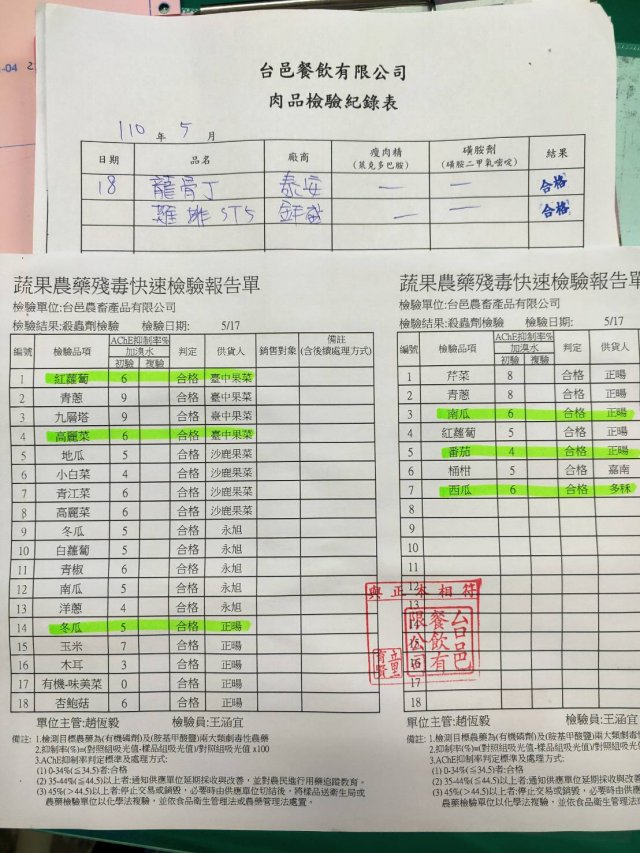 -04 2
台邑餐飲有限公司
肉品檢驗紀錄表
110 年 5 月
日期 品名 廠商 瘦肉精 (萊克多巴胺) 磺胺劑 (磺胺二甲氧嘧啶) 結果
18 龍骨丁 泰安 — — 合格
雞排 — — 合格
蔬果農藥殘毒快速檢驗報告單
檢驗單位:台邑農畜產品有限公司
檢驗結果:殺蟲劑檢驗 檢驗日期: 5/17
編號 檢驗品項 AChE抑制率% 加溴水 初驗 複驗 判定 供貨人 銷售對象 備註 (含後續處理方式)
1 紅蘿蔔 6 合格 臺中果菜
2 青蔥 9 合格 臺中果菜
3 九層塔 9 合格 臺中果菜
4 高麗菜 6 合格 臺中果菜
5 地瓜 5 合格 沙鹿果菜
6 小白菜 4 合格 沙鹿果菜
7 青江菜 6 合格 沙鹿果菜
8 高麗菜 6 合格 沙鹿果菜
9 冬瓜 5 合格 永旭
10 白蘿蔔 5 合格 永旭
11 青椒 6 合格 永旭
12 南瓜 5 合格 永旭
13 洋蔥 4 合格 永旭
14 冬瓜 5 合格 正暘
15 玉米 7 合格 正暘
16 木耳 3 合格 正暘
17 有機-味美菜 0 合格 正暘
18 杏鮑菇 6 合格 正暘
單位主管:趙恆毅 檢驗員:王涵宜
備註: 1.檢測目標農藥為(有機磷劑)及(胺基甲酸鹽)兩大類劇毒性農藥
2.抑制率(%)=(對照組吸光值-樣品組吸光值)/對照組吸光值 x100
3.AChE抑制率判定標準及處理方式:
(1) 0-34%(≦34.5)者:合格
(2) 35-44%(≦44.5)以上者:通知供應單位延期採收與改善，並對農民進行用藥追蹤教育。
(3) 45%(＞44.5)以上者:停止交易或銷毀，必要時由供應單位切結後，將樣品送衛生局或
農藥檢驗單位以化學法複驗，並依食品衛生管理法或農藥管理法處置。
蔬果農藥殘毒快速檢驗報告單
檢驗單位:台邑農畜產品有限公司
檢驗結果:殺蟲劑檢驗 檢驗日期: 5/17
編號 檢驗品項 AChE抑制率% 加溴水 初驗 複驗 判定 供貨人
1 芹菜 8 合格 正暘
2 青蔥 8 合格 正暘
3 南瓜 6 合格 正暘
4 紅蘿蔔 5 合格 正暘
5 番茄 4 合格 正暘
6 桶柑 5 合格 嘉南
7 西瓜 6 合格 多秝
8
9
10
11
12
13
14
15
16
17
18
與正本相符
台邑餐飲有限公司
單位主管:趙恆毅 檢驗員:王涵
備註: 1.檢測目標農藥為(有機磷劑)及(胺基甲酸鹽)兩大類劇毒性
2.抑制率(%)=(對照組吸光值-樣品組吸光值)/對照組吸光值
3.AChE抑制率判定標準及處理方式:
(1) 0-34%(≦34.5)者:合格
(2) 35-44%(≦44.5)以上者:通知供應單位延期採收與改
(3) 45%(＞44.5)以上者:停止交易或銷毀，必要時由供
農藥檢驗單位以化學法複驗，並依食品衛生管理